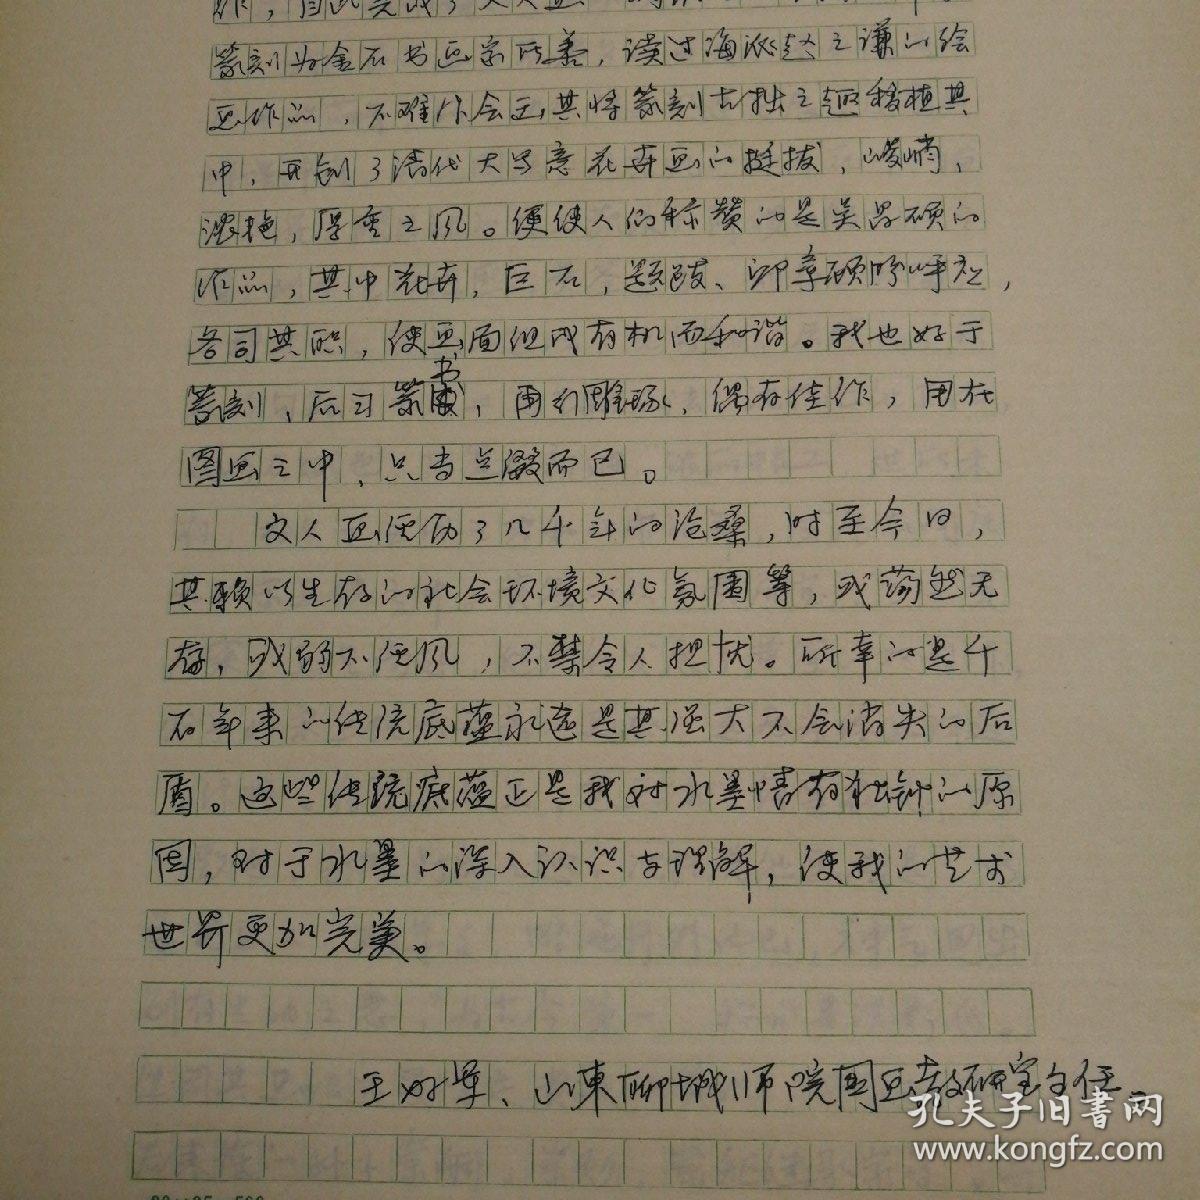 篆刻为金石书画家所善，读过海派赵之谦的绘
画作品，不难体会到其将篆刻古拙之趣移植其
中，开创了清代大写意花卉画的挺拔，峻峭，
浓艳，厚重之风。便使人们称赞的是吴昌硕的
作品，其中花卉，巨石，题跋、印章顾盼呼应，
各司其职，使画面组成有机而和谐。我也好于
篆刻，后习篆书，再行雕琢，偶有佳作，用在
图画之中，只当点缀而已。
文人画经历了几千年的沧桑，时至今日，
其赖以生存的社会环境文化氛围等，或荡然无
存，或弱不经风，不禁令人担忧。所幸的是千
百年来的传统底蕴永远是其强大不会消失的后
盾。这些传统底蕴正是我对水墨情有独钟的原
因，对于水墨的深入认识与理解，使我的艺术
世界更加完美。
王好军、山東聊城师院国画教研室主任
孔夫子旧書网
www.kongfz.com